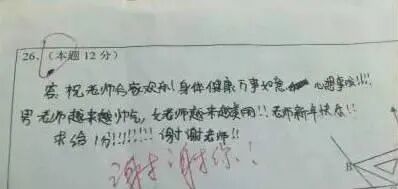 26.(本题12分)
答:祝老师合家欢乐!身体健康万事如意 心想事成!!!!
男老师越来越帅气,女老师越来越美丽!!老师新年快乐!!
求给1分!!!!!!!!谢谢老师!!
谢谢你!!
B